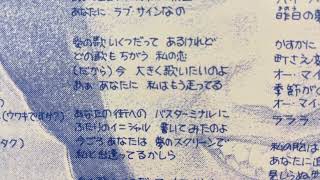 あなたに ラブ・サインなの
愛の歌 いくつだって あるけれど
どの歌も ちがう 私の恋
(だから) 今 大きく歌いたいのよ
ああ あなたに 私はもう走ってる
あなたの街への バスターミナルに
ふたりのイニシャル 書いてみたのよ
今ごろ あなたは 夢のスクリーンで
私と出逢ってるかしら
(ウワキですザワ)
タク)
昨日の
かすかに
町さえ
オー・マイ
季節が
オー・マイ
ラララ
私の胸は
あなたに
見しらぬ